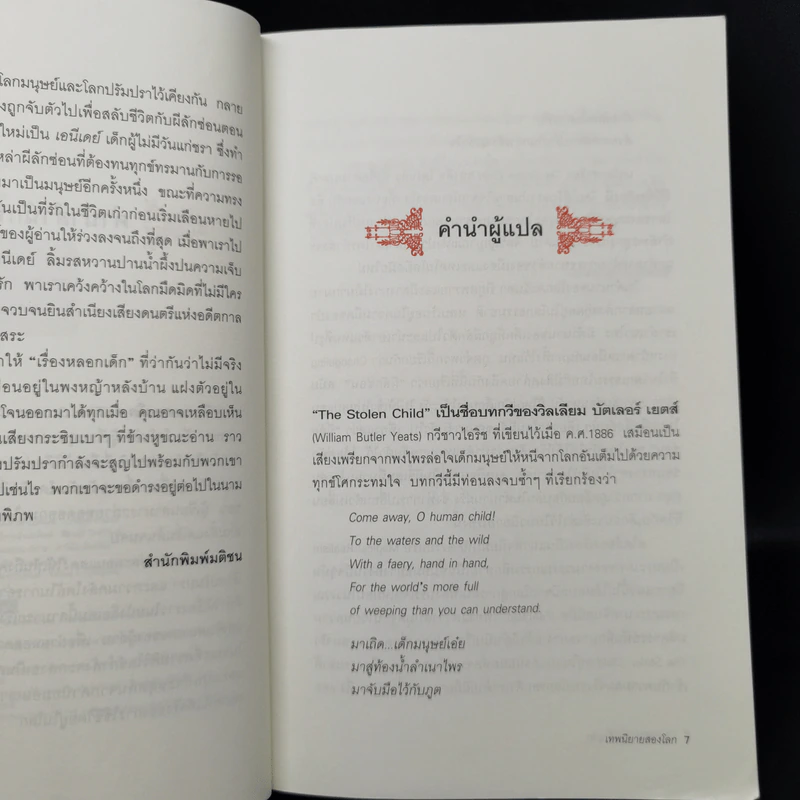 โลกมนุษย์และโลกปรัมปราไว้เคียงกัน กลาย
งถูกจับตัวไปเพื่อสลับชีวิตกับผีลักซ่อนตอน
ใหม่เป็น เอนีเดย์ เด็กผู้ไม่มีวันแก่ชรา ซึ่งทำ
หล่าผีลักซ่อนที่ต้องทนทุกข์ทรมานกับการรอ
มาเป็นมนุษย์อีกครั้งหนึ่ง ขณะที่ความทรง
ันเป็นที่รักในชีวิตเก่าก่อนเริ่มเลือนหายไป
ของผู้อ่านให้ร่วงลงจนถึงที่สุด เมื่อพาเราไป
นีเดย์ ลิ้มรสหวานปานน้ำผึ้งปนความเจ็บ
รัก พาเราเคว้งคว้างในโลกมืดมิดที่ไม่มีใคร
จวบจนยินสำเนียงเสียงดนตรีแห่งอดีตกาล
สระ
าให้ “เรื่องหลอกเด็ก” ที่ว่ากันว่าไม่มีจริง
่อนอยู่ในพงหญ้าหลังบ้าน แฝงตัวอยู่ใน
โจนออกมาได้ทุกเมื่อ คุณอาจเหลือบเห็น
นเสียงกระซิบเบาๆ ที่ข้างหูขณะอ่าน ราว
งปรัมปรากำลังจะสูญไปพร้อมกับพวกเขา
ปเช่นไร พวกเขาจะขอดำรงอยู่ต่อไปในนาม
งพิภพ
สำนักพิมพ์มติชน
คำนำผู้แปล
“The Stolen Child” เป็นชื่อบทกวีของวิลเลียม บัตเลอร์ เยตส์
(William Butler Yeats) กวีชาวไอริช ที่เขียนไว้เมื่อ ค.ศ.1886 เสมือนเป็น
เสียงเพรียกจากพงไพรล่อใจเด็กมนุษย์ให้หนีจากโลกอันเต็มไปด้วยความ
ทุกข์โศกระทมใจ บทกวีนี้มีท่อนลงจบซ้ำๆ ที่เรียกร้องว่า
Come away, O human child!
To the waters and the wild
With a faery, hand in hand,
For the world's more full
of weeping than you can understand.
มาเถิด...เด็กมนุษย์เอ๋ย
มาสู่ท้องน้ำลำเนาไพร
มาจับมือไว้กับภูต
เทพนิยายสองโลก 7